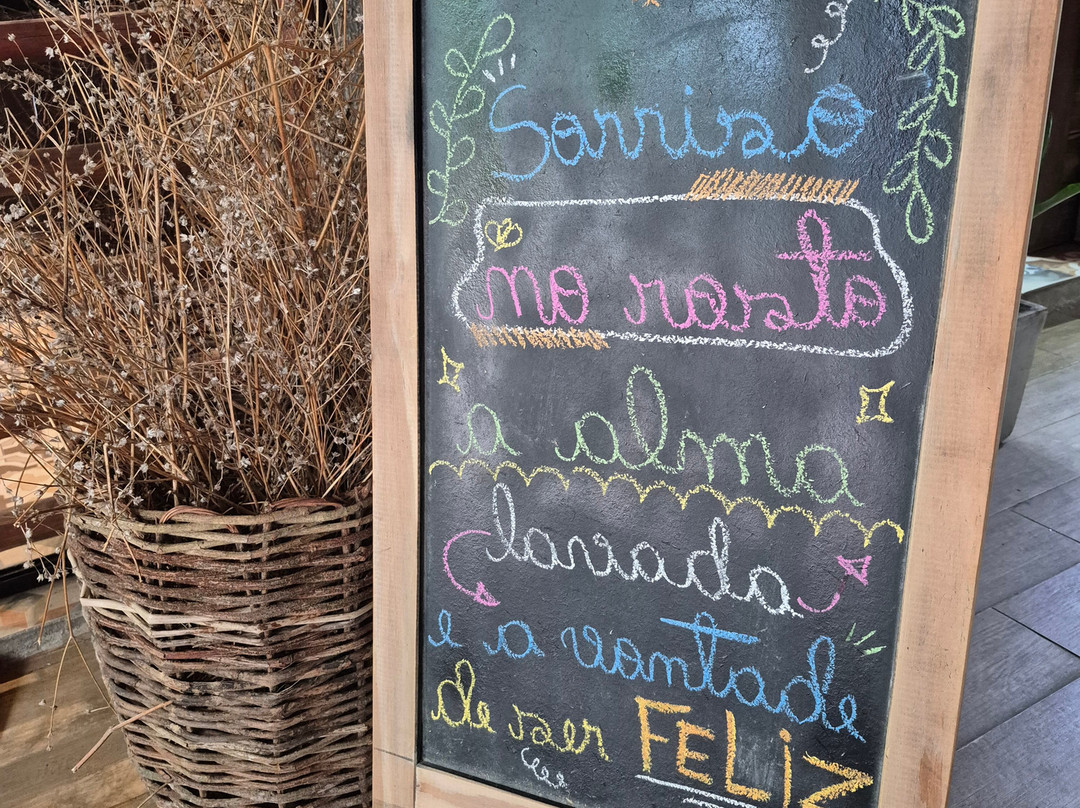 Sorriso
no rosto
a alma
lavada
e a vontade
de ser FELiz